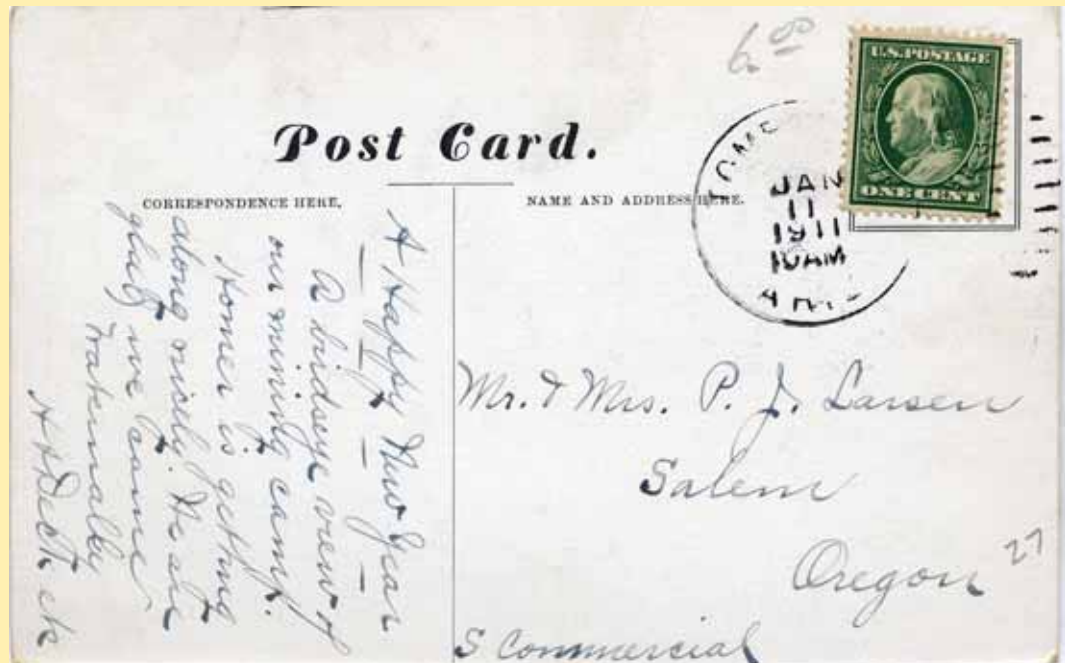 6.00
U.S. POSTAGE
ONE CENT
Post Card.
CORRESPONDENCE HERE,
NAME AND ADDRESS HERE.
JAN
11
1911
10AM
ARIZ
A Happy New Year
A birdseye view of
our mining camp.
Homer is getting
along nicely.
glad we came
Fraternally
Mr. & Mrs. P. J. Larsen
Salem
Oregon
S Commercial
27